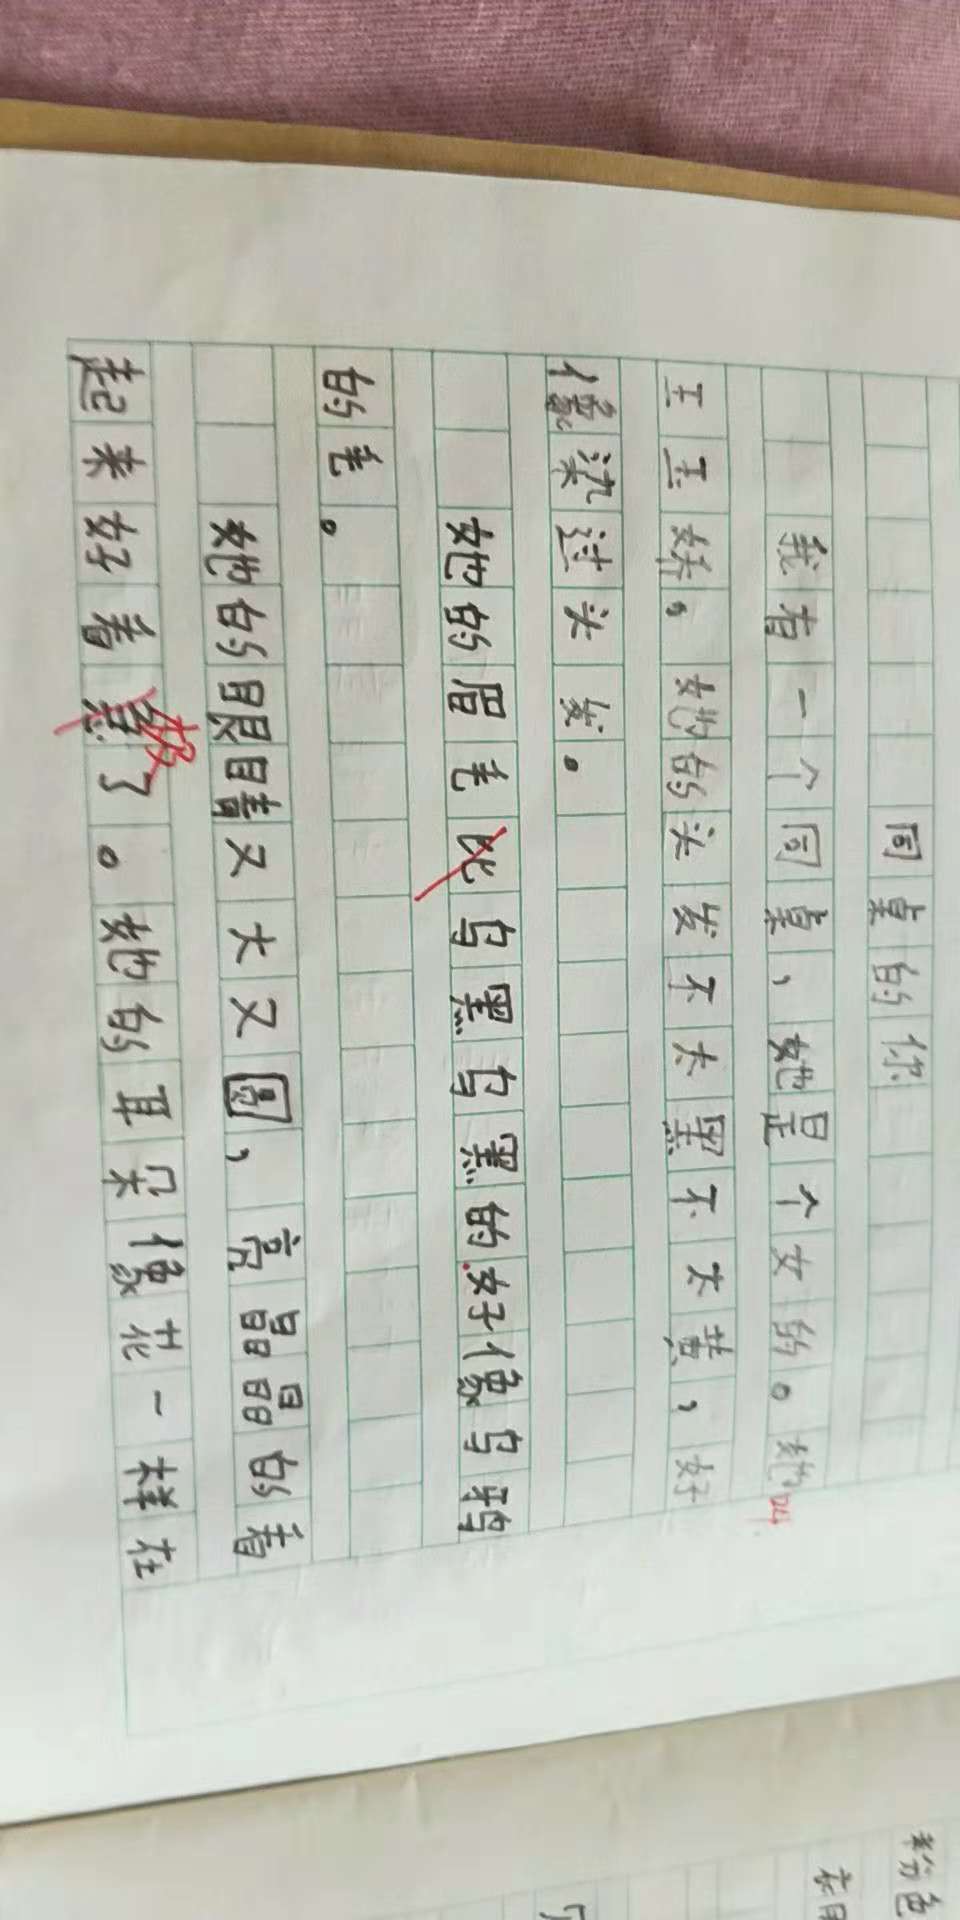 同桌的你
我有一个同桌,她是个女的。她叫
王玉娇。她的头发不太黑不太黄,好
像染过头发。
她的眉毛比乌黑乌黑的好像乌鸦
的毛。
她的眼睛又大又圆,亮晶晶的看
起来好着急了。她的耳朵像花一样在
粉色